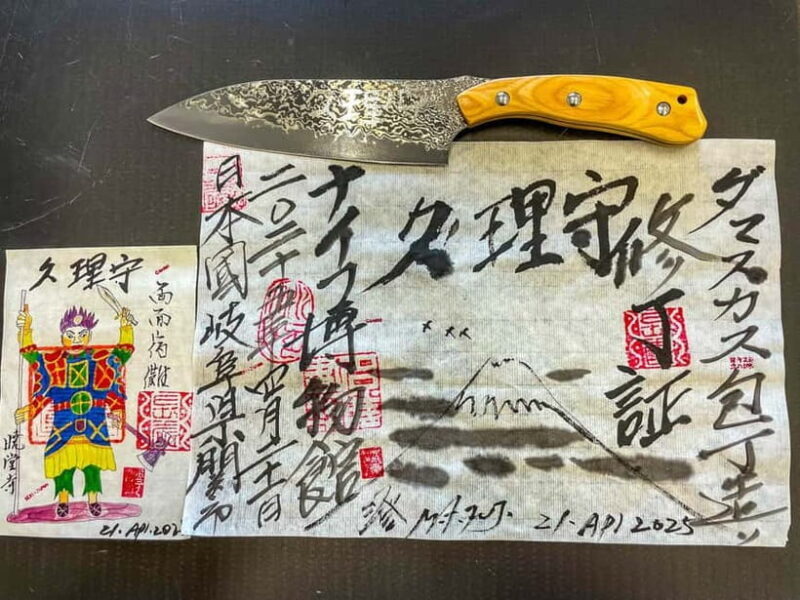 ダマスカス包丁造り
修了証
久理守
ナイフ博物館
二〇二十五年四月二十一日
日本國岐阜県関市
21. API 2025
久理守
暁堂寺
21.API.202